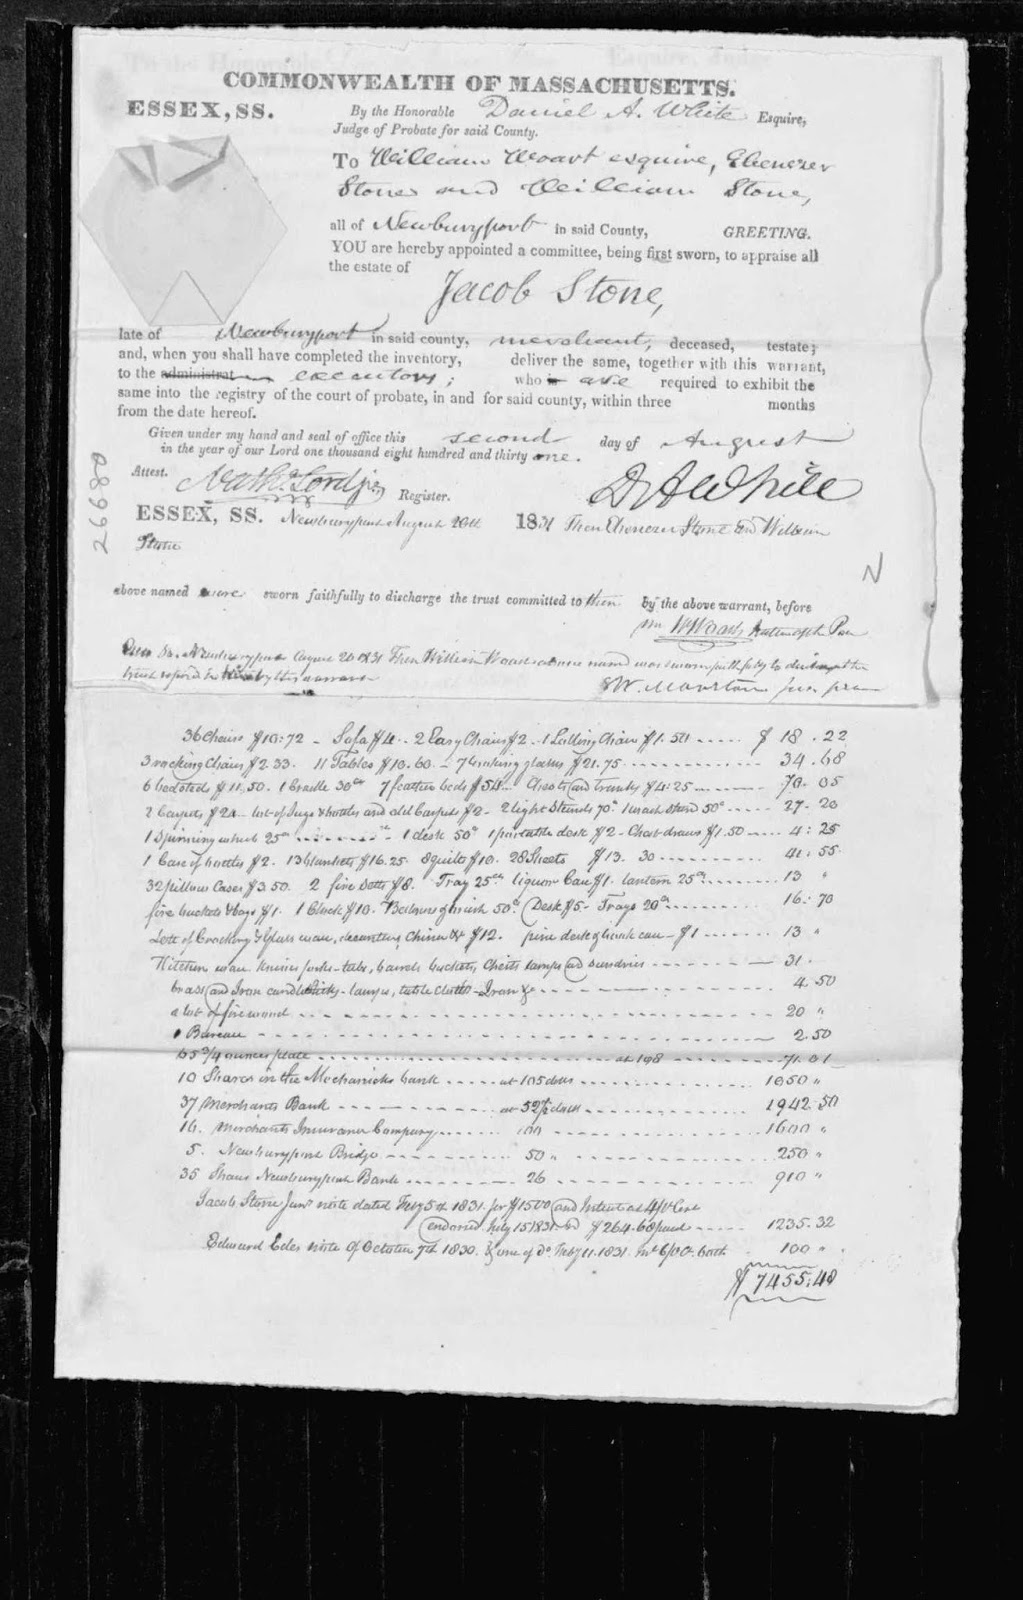 COMMONWEALTH OF MASSACHUSETTS.
ESSEX, SS.
By the Honorable Daniel A. White Esquire,
Judge of Probate for said County.
To William Woart esquire, Ebenezer
Stone and William Stone,
all of Newburyport in said County, GREETING.
YOU are hereby appointed a committee, being first sworn, to appraise all
the estate of
Jacob Stone,
late of Newburyport in said county, merchant, deceased, testate;
and, when you shall have completed the inventory, deliver the same, together with this warrant,
to the administrat executors; who are required to exhibit the
same into the registry of the court of probate, in and for said county, within three months
from the date hereof.
Given under my hand and seal of office this second day of August
in the year of our Lord one thousand eight hundred and thirty one.
Attest. Nath. Lord jr, Register.
D A White
26680
ESSEX, SS. Newburyport August 20th 1831 Then Ebenezer Stone and William
Stone
N
above named were sworn faithfully to discharge the trust committed to them by the above warrant, before
me W Woart
Essex Ss. Newburyport August 20 1831 Then William Woart above named was sworn faithfully to discharge the
trust reposed in him by this warrant
36 Chairs $10:72 - Sofa $4 - 2 Easy Chairs $2 - 1 Lolling Chair $1.50 $ 18.22
3 rocking Chairs $2.33. 11 Tables $10.60 - 7 looking glasses $21.75 34.68
6 bedsteds $11,50. 1 Cradle 30cts 7 feather beds $54 - Chests and trunks $4:25 70.05
2 Carpets $20 - lot of Jugs & bottles and old Carpets $2 - 2 light Stands 70c 1 wash stand 50c 27.20
1 Spinning wheel 25cts 1 desk 50c 1 portable desk $2 - Chest draws $1.50 4:25
1 Case of bottles $2. 13 blankets $16.25 8 quilts $10. 28 Sheets $13.30 41:55
32 pillow Cases $3.50. 2 fire setts $8. Tray 25cts liquor Case $1. lantern 25cts 13 "
fire buckets & bags $1. 1 Clock $10. 50c Desk $5 - Trays 20cts 16:70
Lots of Crockery & Glass ware, decanters, China &c $12. pine desk & book case - $1 13 "
Kitchen ware knives forks - tubs, barrels buckets, Chests lamps and sundries 31.
brass and Iron candlesticks - lamps, table cloths - Iron &c 4.50
a lot of firewood 20 "
1 Bureau 2.50
65 3/4 ounces plate at 108 71.01
10 Shares in the Mechanicks bank at 105 dolls 1050 "
37 Merchants Bank at 52½ dolls 1942.50
16. Merchants Insurance Company 100 1600 "
5. Newburyport Bridge 50 " 250 "
35 Shares Newburyport Bank 26 910 "
Jacob Stone Junr note dated Feby 5th 1831 for $1500 and Interest at 4 pr Cent
endorsed July 15 1831. $264.68 paid 1235.32
Edward Edes note of October 7th 1830. & one of Do. Feby 11. 1831. 100 "
$ 7455.48